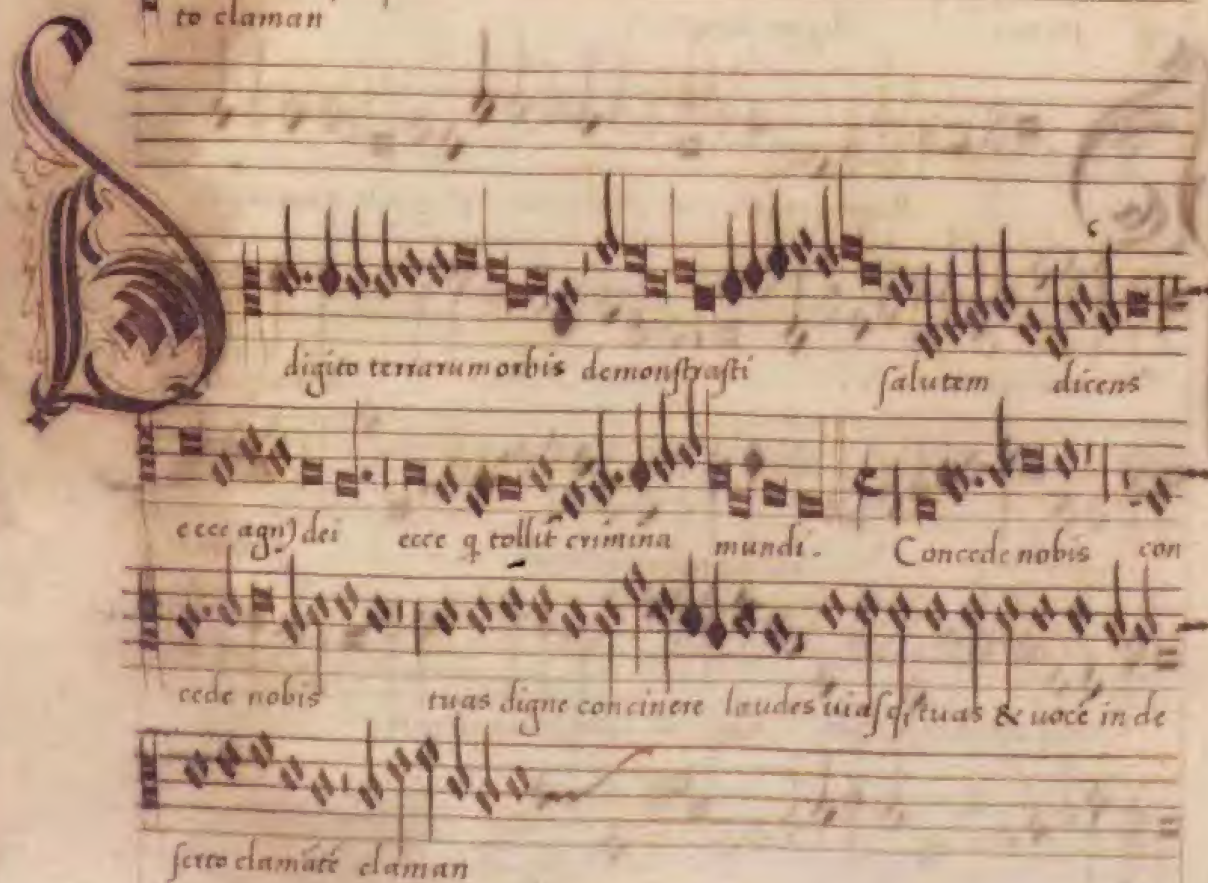 to claman
digito terrarum orbis demonſtraſti ſalutem dicens
ecce agn) dei ecce q tollit crimina mundi. Concede nobis con
cede nobis tuas digne concinere laudes tuas & uocē in de
ſerto clamātē claman